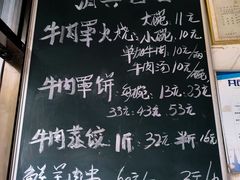 牛肉罩火烧 大碗 11元
小碗 10元
单加牛肉 10元/两
牛肉汤 10元/碗
牛肉罩饼 每碗 13元 23元
33元 43元 53元
牛肉蒸饺 1斤 32元 半斤 16元